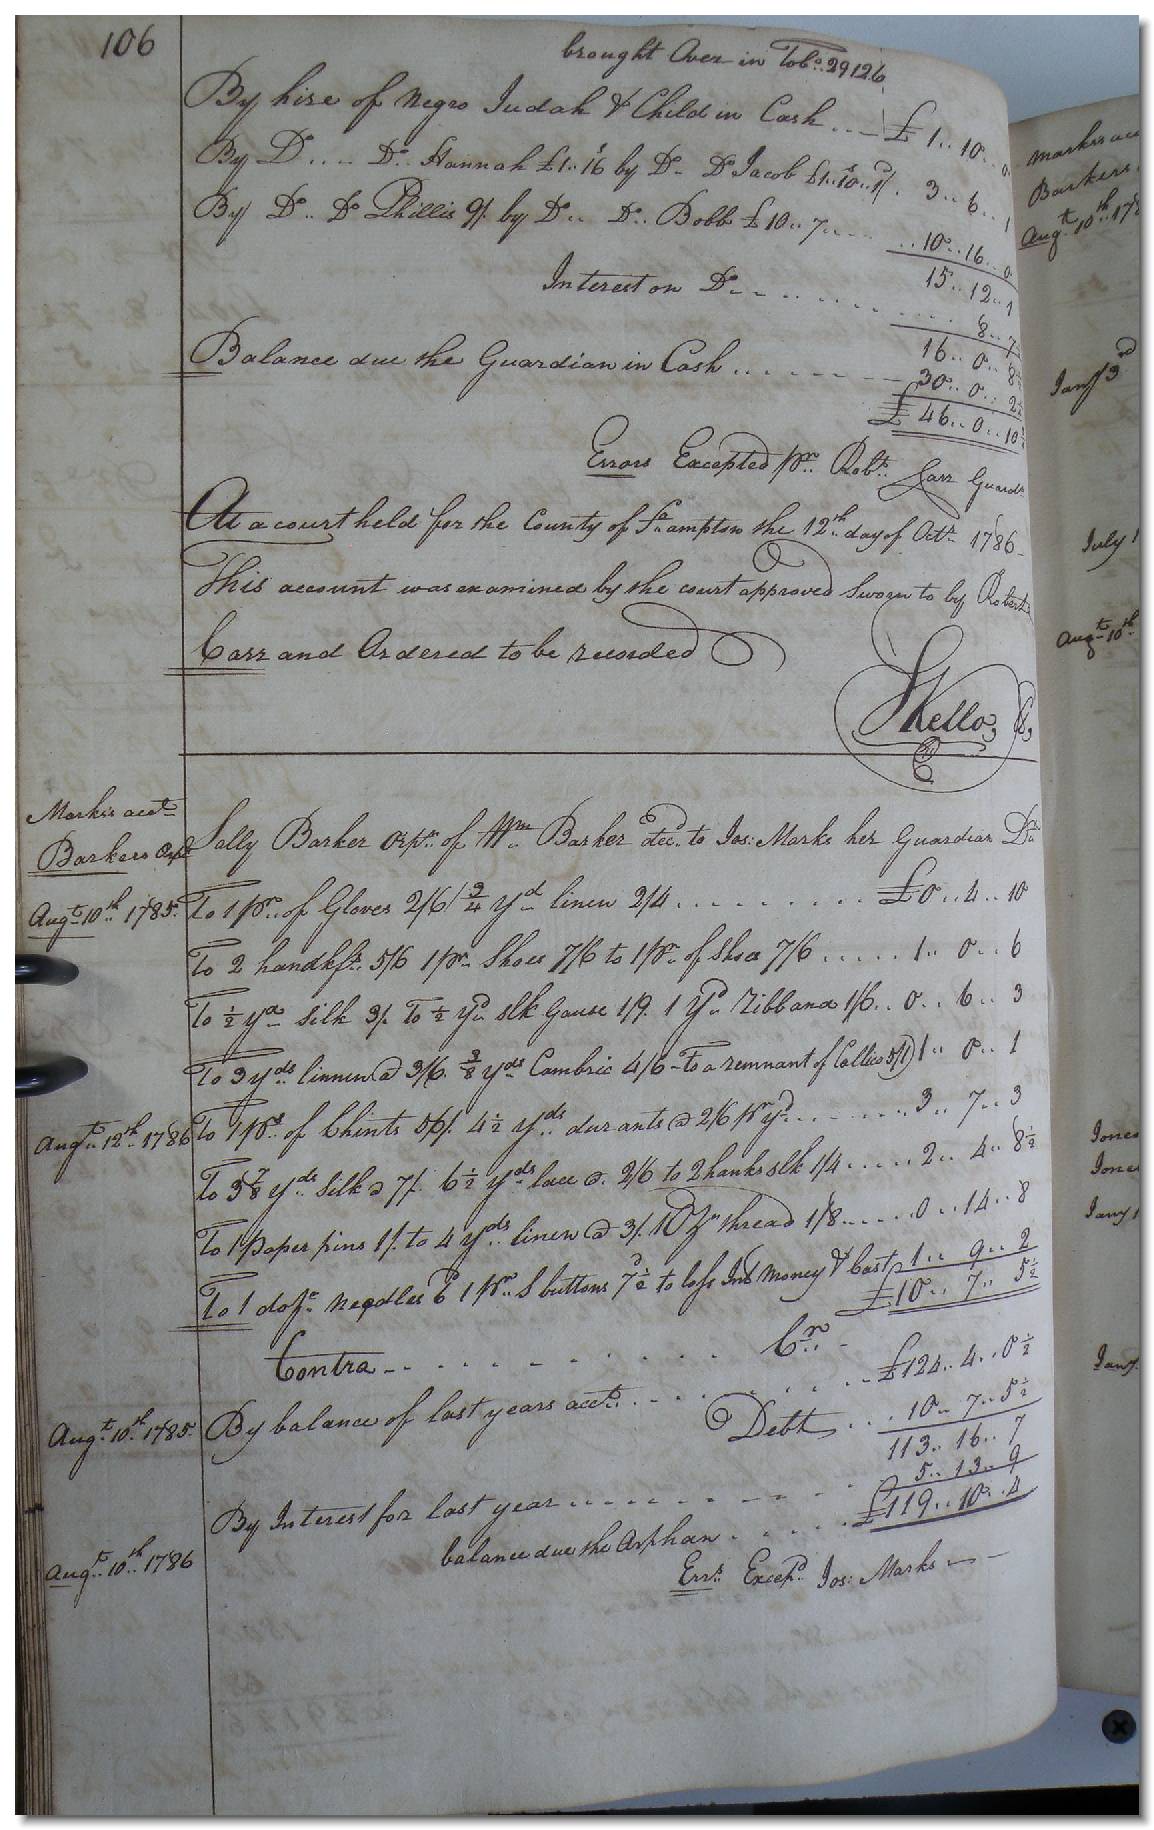 106
brought Over in Tobo. 29126
By hire of Negro Judah & Child in Cash ... £ 1.. 10.. 0
By Do... Do. Hannah £1..16 by Do. Do Jacob £1..10..1 . 3.. 6.. 1
By Do.. Do Phillis 9/. by Do.. Do.. Bobb £10.. 7.... ..10..16..0
15..12..1
Interest on Do..........
8.. 7
16.. 0.. 8
Balance due the Guardian in Cash .......
30.. 0.. 2
£ 46.. 0.. 10
Errors Excepted pr. Robt. Carr Guardn
At a court held for the County of So.ampton the 12th day of Octr. 1786
This account was examined by the court approved Sworn to by Robert
Carr and Ordered to be recorded
SKello, C,
Marks's acct
Barkers Orpn
Sally Barker Orpn. of Wm. Barker decd. to Jos: Marks her Guardian Dr.
Augt. 10th 1785. To 1 pr. of Gloves 2/6 3/4 yd linen 2/4 ......... £0..4..10
To 2 handkfs. 5/6 1 pr. Shoes 7/6 to 1 pr. of Shoa 7/6 ..... 1.. 0.. 6
To 1/2 yd silk 3/. To 1/2 yd. slk Gause 1/9. 1 yd. Ribband 1/6.. 0.. 6.. 3
To 3 yds. linnen @ 3/6. 3/8 yds Cambric 4/6 - To a remnant of Callico 5/1) 1.. 0.. 1
Augt. 12th 1786 To 1 ps. of Chints 56/. 4 1/2 yds. durants @ 2/6 pr yd........ 3.. 7.. 3
To 3 7/8 yds. Silk @ 7/. 6 1/2 yds lace @. 2/6 to 2 hanks slk 1/4 ..... 2.. 4.. 8 1/2
To 1 paper pins 1/. to 4 yds. linen @ 3/. thread 1/8..... 0.. 14.. 8
To 1 dosn. Needles 6d 1 pr. S buttons 7d 1/2 to loss Ind money & Cast 1.. 9.. 2
£10.. 7.. 5 1/2
Contra ............ Cr. -
Augt. 10th 1785. By balance of last years acct. .......... £124.. 4.. 0 1/2
Debt ... 10.. 7.. 5 1/2
113.. 16.. 7
Augt. 10th 1786 By Interest for last year .......... 5.. 13.. 9
balance due the Orphan ..... £119.. 10.. 4
Errs. Excepd. Jos: Marks
Marks's acc
Barkers
Augt. 10th 178
Jany 3rd
July 1
Augt. 10th
Jones
Jones
Jany 1
Jany.